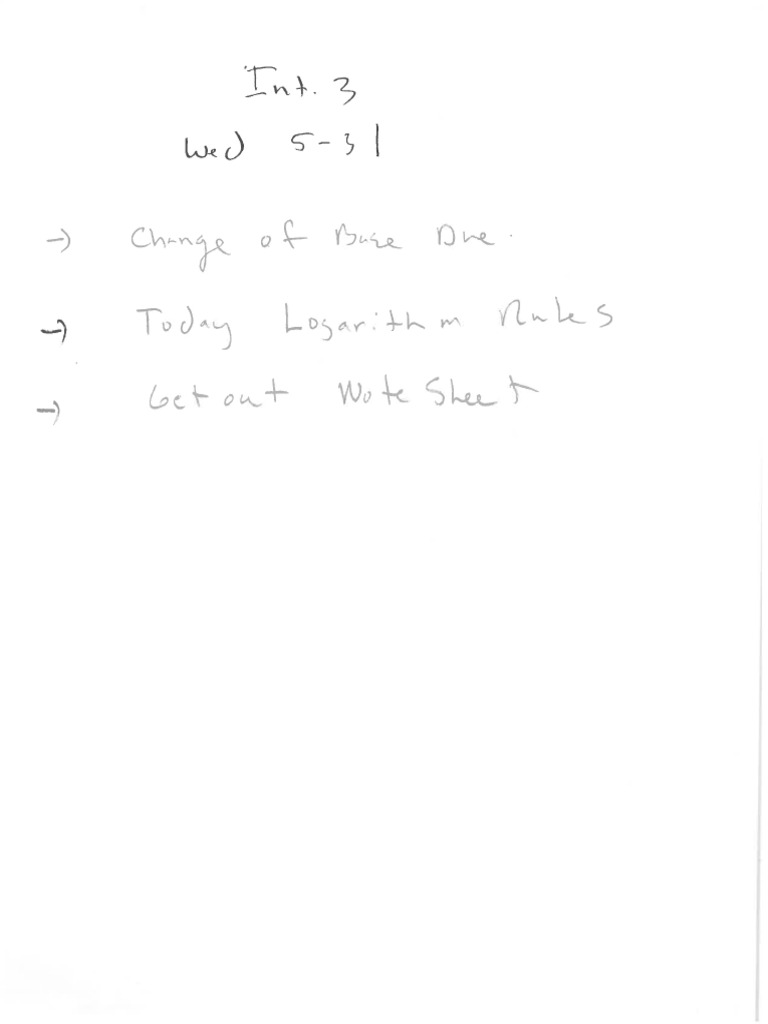 Int. 3
Wed 5-31
→ Change of Base Due.
→ Today Logarithm Rules
→ Get out Note Sheet